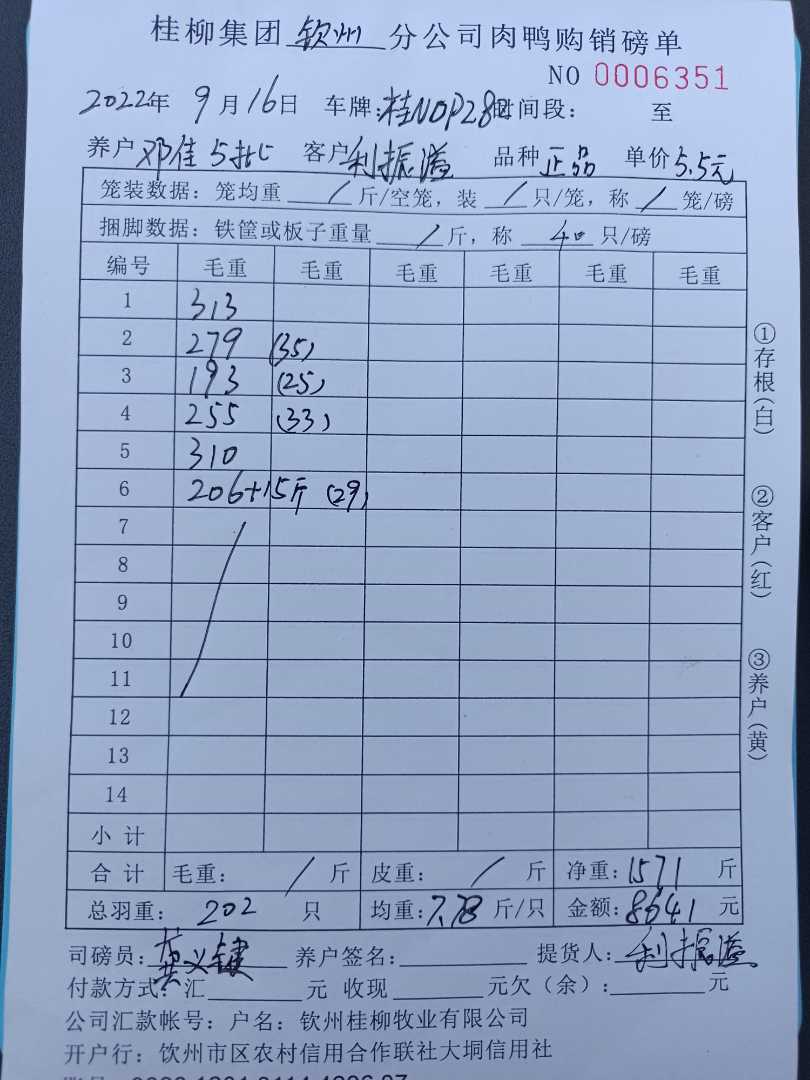 桂柳集团 钦州 分公司肉鸭购销磅单
NO 0006351
2022年 9月16日 车牌:桂N0P282 时间段: 至
养户 邓佳5批 客户 利振溢 品种 正品 单价 5.5元
笼装数据: 笼均重 / 斤/空笼, 装 / 只/笼, 称 / 笼/磅
捆脚数据: 铁筐或板子重量 / 斤, 称 40 只/磅
编号 毛重 毛重 毛重 毛重 毛重 毛重
1 313
2 279 (35)
3 193 (25)
4 255 (33)
5 310
6 206+15斤 (29)
7
8
9
10
11
12
13
14
小 计
合 计 毛重: / 斤 皮重: / 斤 净重: 1571 斤
总羽重: 202 只 均重: 7.78 斤/只 金额: 8641 元
司磅员: 莫义键 养户签名: 提货人: 利振溢
付款方式: 汇 元 收现 元欠(余): 元
公司汇款帐号: 户名: 钦州桂柳牧业有限公司
开户行: 钦州市区农村信用合作联社大垌信用社
①存根(白)
②客户(红)
③养户(黄)